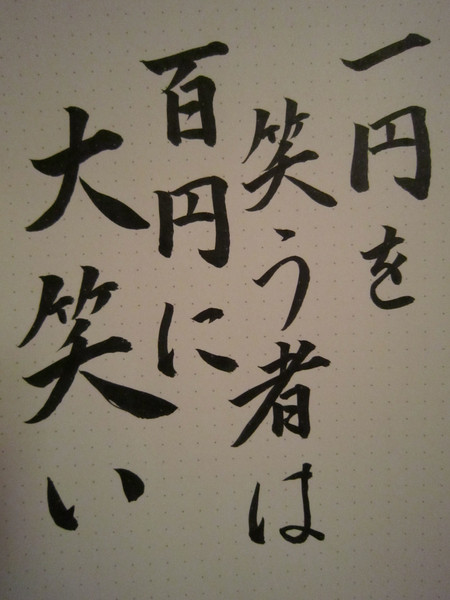 一円を
笑う者は
百円に
大笑い